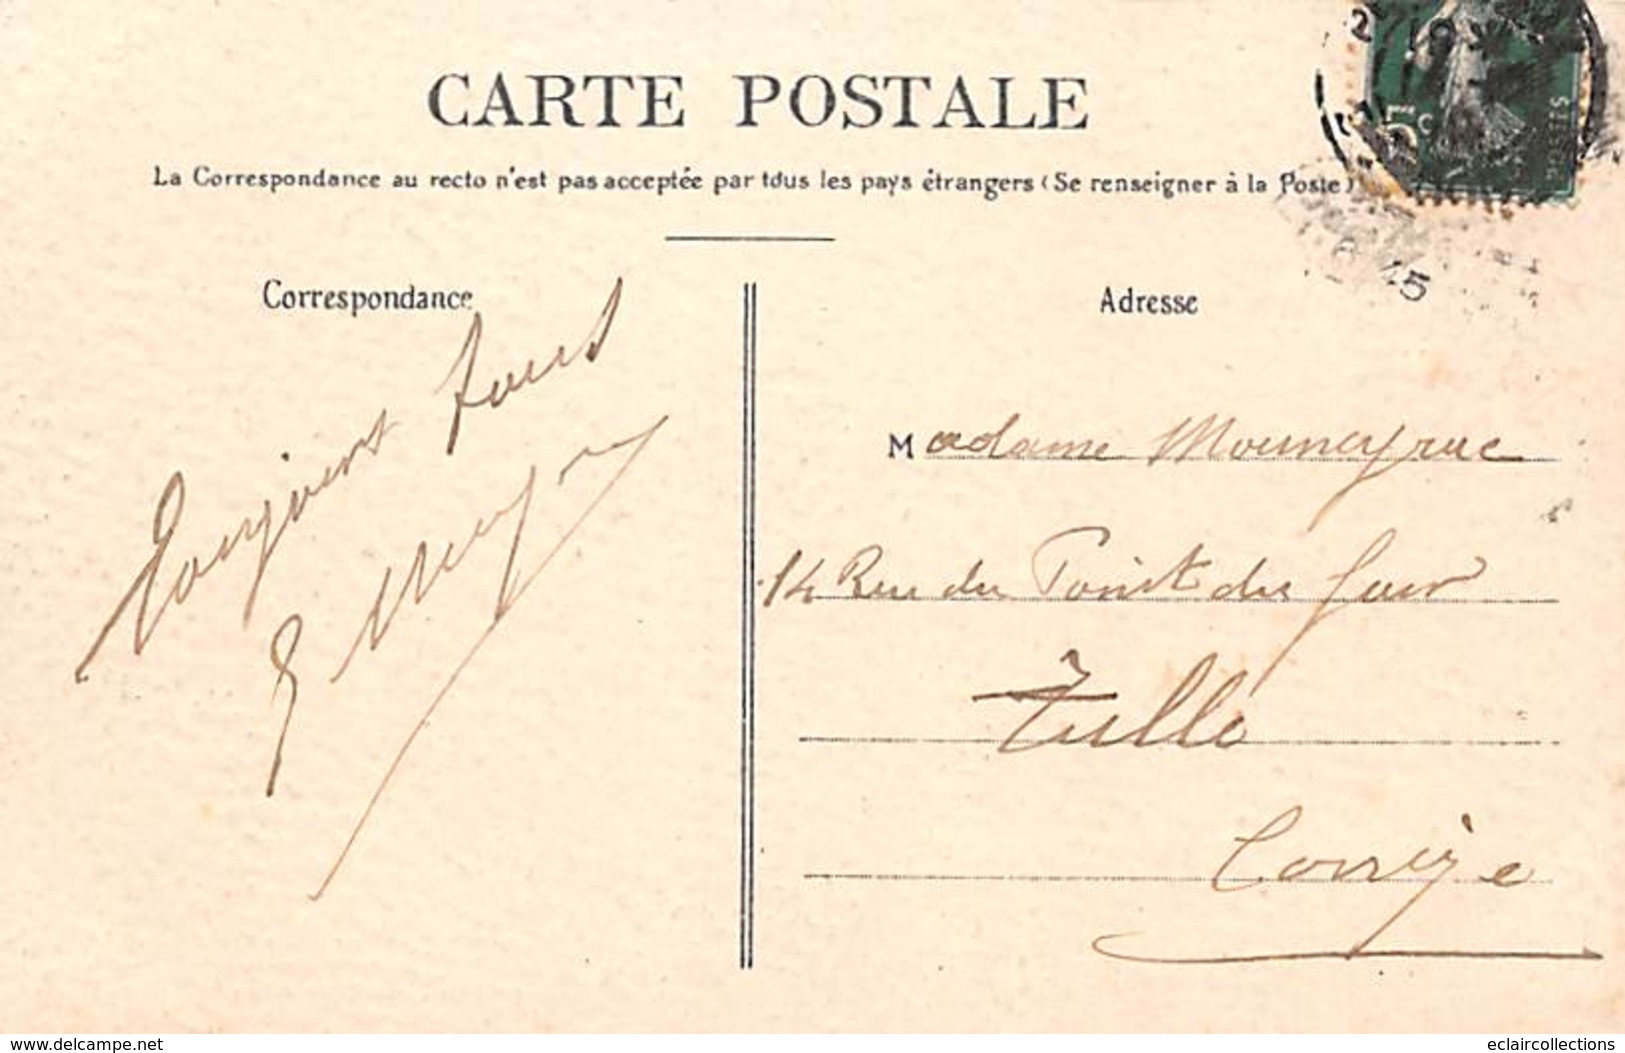 CARTE POSTALE
La Correspondance au recto n'est pas acceptée par tous les pays étrangers (Se renseigner à la Poste)
Correspondance
Toujours
Adresse
Madame Moumeyrac
14 Rue du Point du Jour
Tulle
Corrèze
5c
POSTES
15
www.delcampe.net
eclaircollections